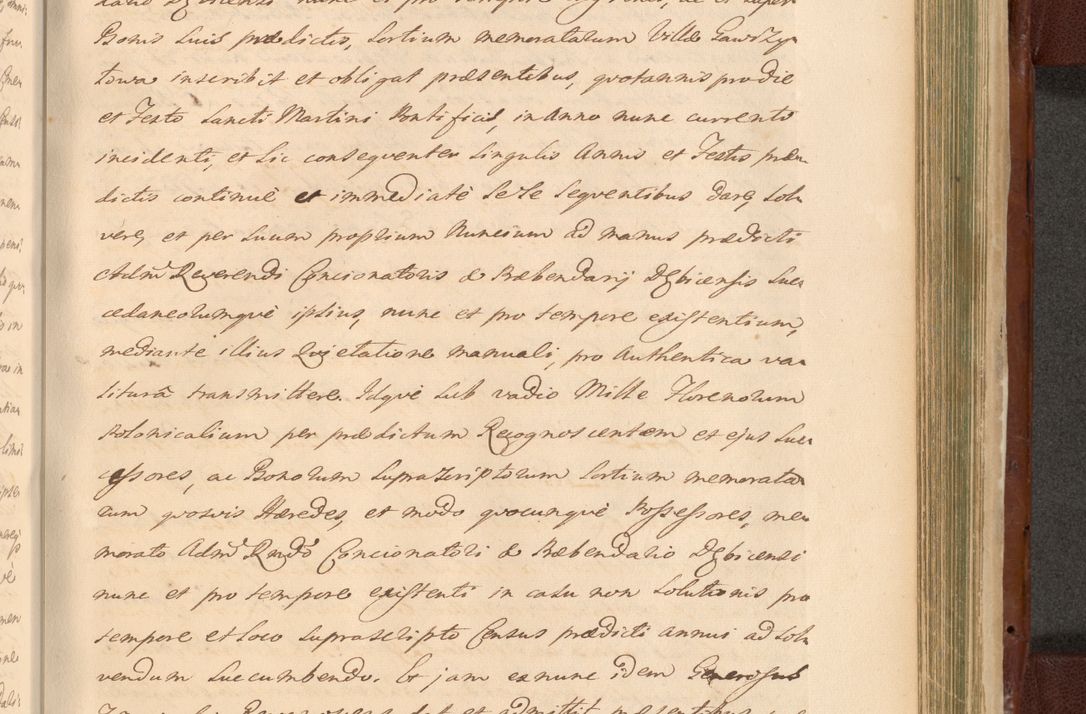 Bonis suis prædictis, Sortium memoratarum Villæ Gawrzy-
lowa inscribit et obligat præsentibus, quotannis pro die
et Festo Sancti Martini Pontificis, in Anno nunc currente
incidenti, et sic consequenter singulis Annis et Festis præ-
dictis continue et immediatè sese sequentibus dare, sol-
vere, et per suum proprium Nuncium ad manus prædicti
Admd Reverendi Concionatoris & Præbendarij Dębicensis suc-
cedaneorumquè ipsius, nunc et pro tempore existentium,
mediante illius Quietatione manuali, pro Authentica va-
liturâ transmittere. Idquè sub vadio Mille Florenorum
Polonicalium per prædictum Recognoscentem et ejus Suc-
cessores, ac Bonorum suprascriptorum Sortium memorata-
rum quosvis Hæredes, et modo quocunquè Possessores, me-
morato Admd Rndo Concionatori & Præbendario Dębicensi
nunc et pro tempore existenti in casu non solutionis pro
tempore et loco suprascripto Census prædicti annui ad sol-
vendum succumbendo. Et jam ex nunc idem Generosus